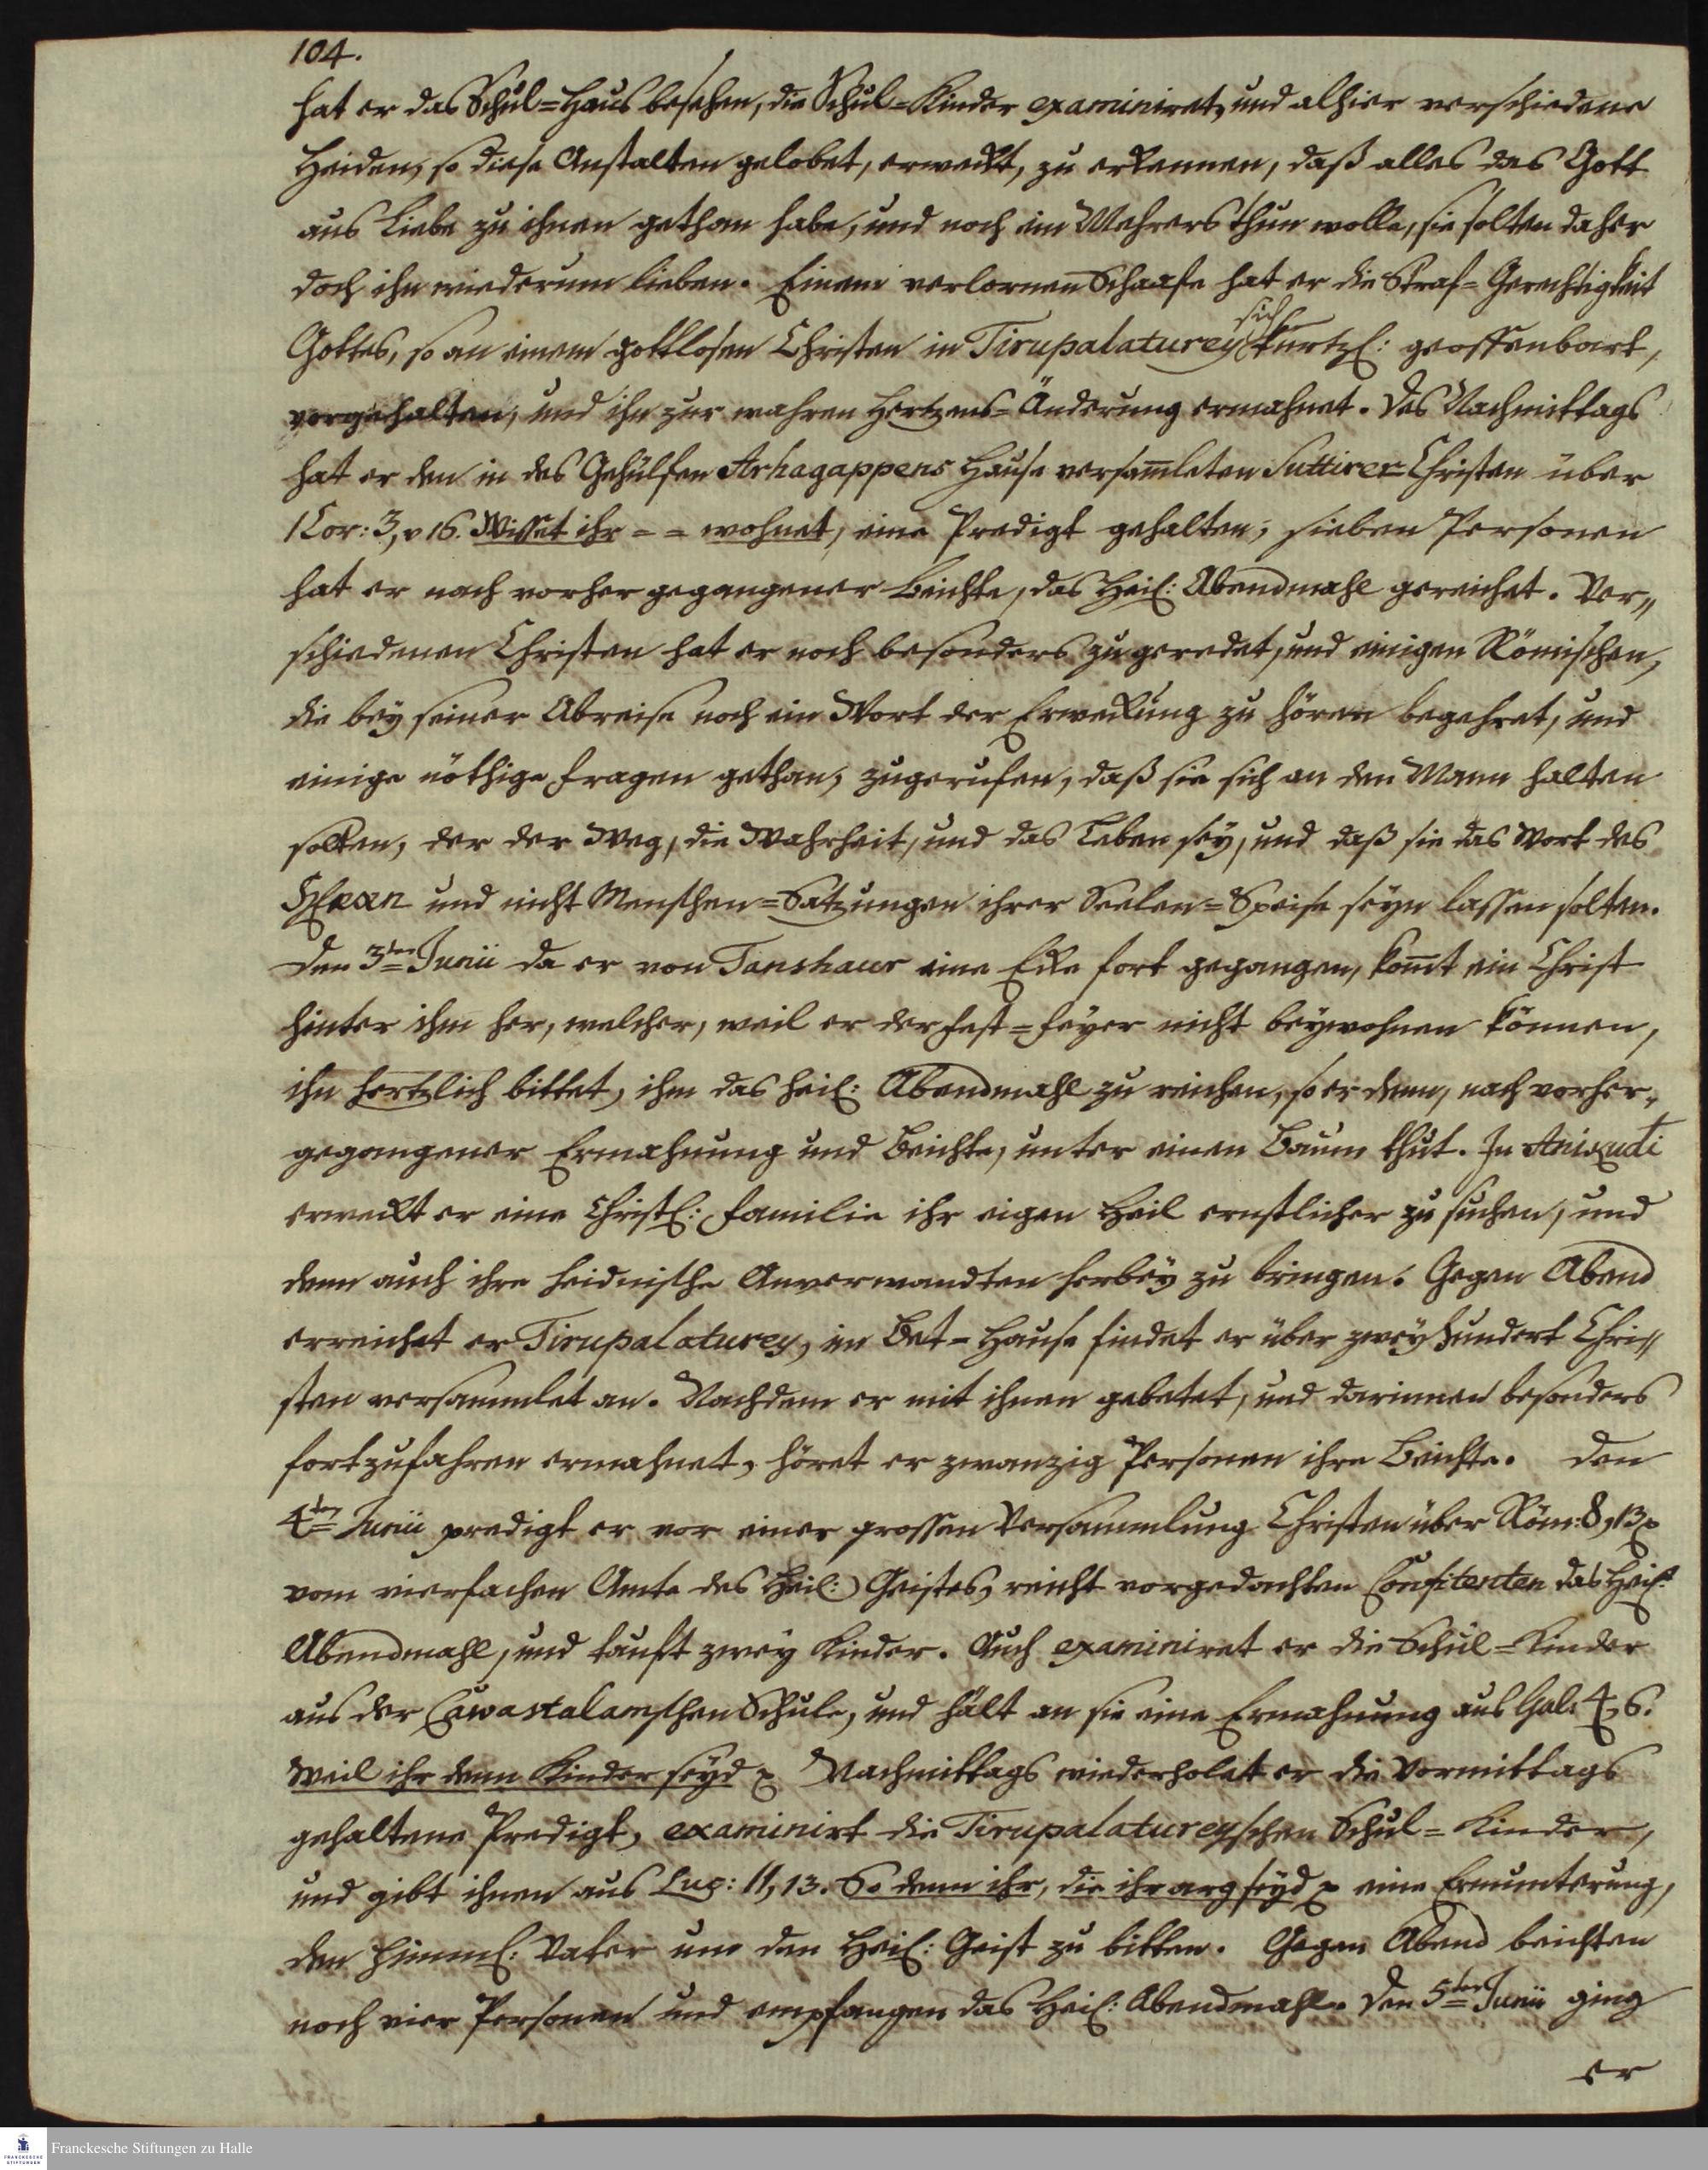 104.
hat er das Schul=Haus besehen, die Schul=Kinder examiniret, und alhier verschiedene
Heiden, so diese Anstalten gelobet, erweckt, zu erkennen, daß alles das Gott
aus Liebe zu ihnen gethan habe, und noch ein Mehrers thun wolle, sie solten daher
doch ihn wiederum lieben. Einem verlornen Schaafe hat er die Straf=Gerechtigkeit
Gottes, so an einem gottlosen Christen in Tirupalaturey sich kurtzl: geoffenbart,
vorgehalten, und ihn zur wahren Hertzens=Änderung ermahnet. Des Nachmittags
hat er den in des Gehülfen Arhagappens Hause versam̄leten Suttirer Christen über
1 Cor: 3, v 16. Wisset ihr = = wohnet, eine Predigt gehalten; sieben Personen
hat er nach vorher gegangener Beichte, das Heil: Abendmahl gereichet. Ver„
schiedenen Christen hat er noch besonders zugeredet, und einigen Römischen,
die bey seiner Abreise noch ein Wort der Erweckung zu hören begehret, und
einige nöthige Fragen gethan, zugerufen, daß sie sich an den Mann halten
solten, der der Weg, die Wahrheit, und das Leben sey, und daß sie das Wort des
HErrn und nicht Menschen=Satzungen ihrer Seelen=Speise seyn lassen solten.
Den 3ten Junii da er von Tanshaur eine Ecke fort gegangen, kom̄t ein Christ
hinter ihm her, welcher, weil er der Fest=Feyer nicht beywohnen können,
ihn hertzlich bittet, ihm das heil: Abendmahl zu reichen, so er denn, nach vorher„
gegangener Ermahnung und Beichte, unter einen Baum thut. In Anicudi
erweckt er eine Christl: Familie ihr eigen Heil ernstlicher zu suchen, und
denn auch ihre heidnische Anverwandten herbey zu bringen. Gegen Abend
erreichet er Tirupalaturey, im Bet=Hause findet er über zwey hundert Chri„
sten versammlet an. Nachdem er mit ihnen gebetet, und darinnen besonders
fortzufahren ermahnet, höret er zwanzig Personen ihre Beichte. Den
4ten Junii predigt er vor einer grossen Versammlung Christen über Röm: 8, 13
vom vierfachen Amte des Heil: Geistes, reicht vorgedachten Confitenten das Heil:
Abendmahl, und tauft zwey Kinder. Auch examiniret er die Schul=Kinder
aus der Cawastalamschen Schule, und hält an sie eine Ermahnung aus Gal: 4, 6.
Weil ihr denn Kinder seyd Nachmittags wiederholet er die Vormittags
gehaltene Predigt, examinirt die Tirupalatureyschen Schul=Kinder,
und gibt ihnen aus Luc: 11, 13. So denn ihr, die ihr arg seyd eine Ermunterung,
den himml: Vater um den Heil: Geist zu bitten. Gegen Abend beichten
noch vier Personen und empfangen das Heil: Abendmahl. Den 5ten Junii ging
er
Franckesche Stiftungen zu Halle